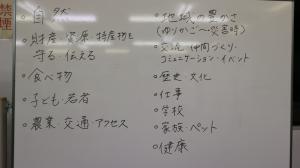 禁煙
○自然
○財産・資源・特産物を
守る・伝える
○食べ物
○子ども・若者
○農業・交通・アクセス
○地域の豊かさ
(ゆりかご〜災害時)
○交流・仲間づくり・
コミュニケーション・イベント
○歴史・文化
○仕事
○学校
○家族・ペット
○健康